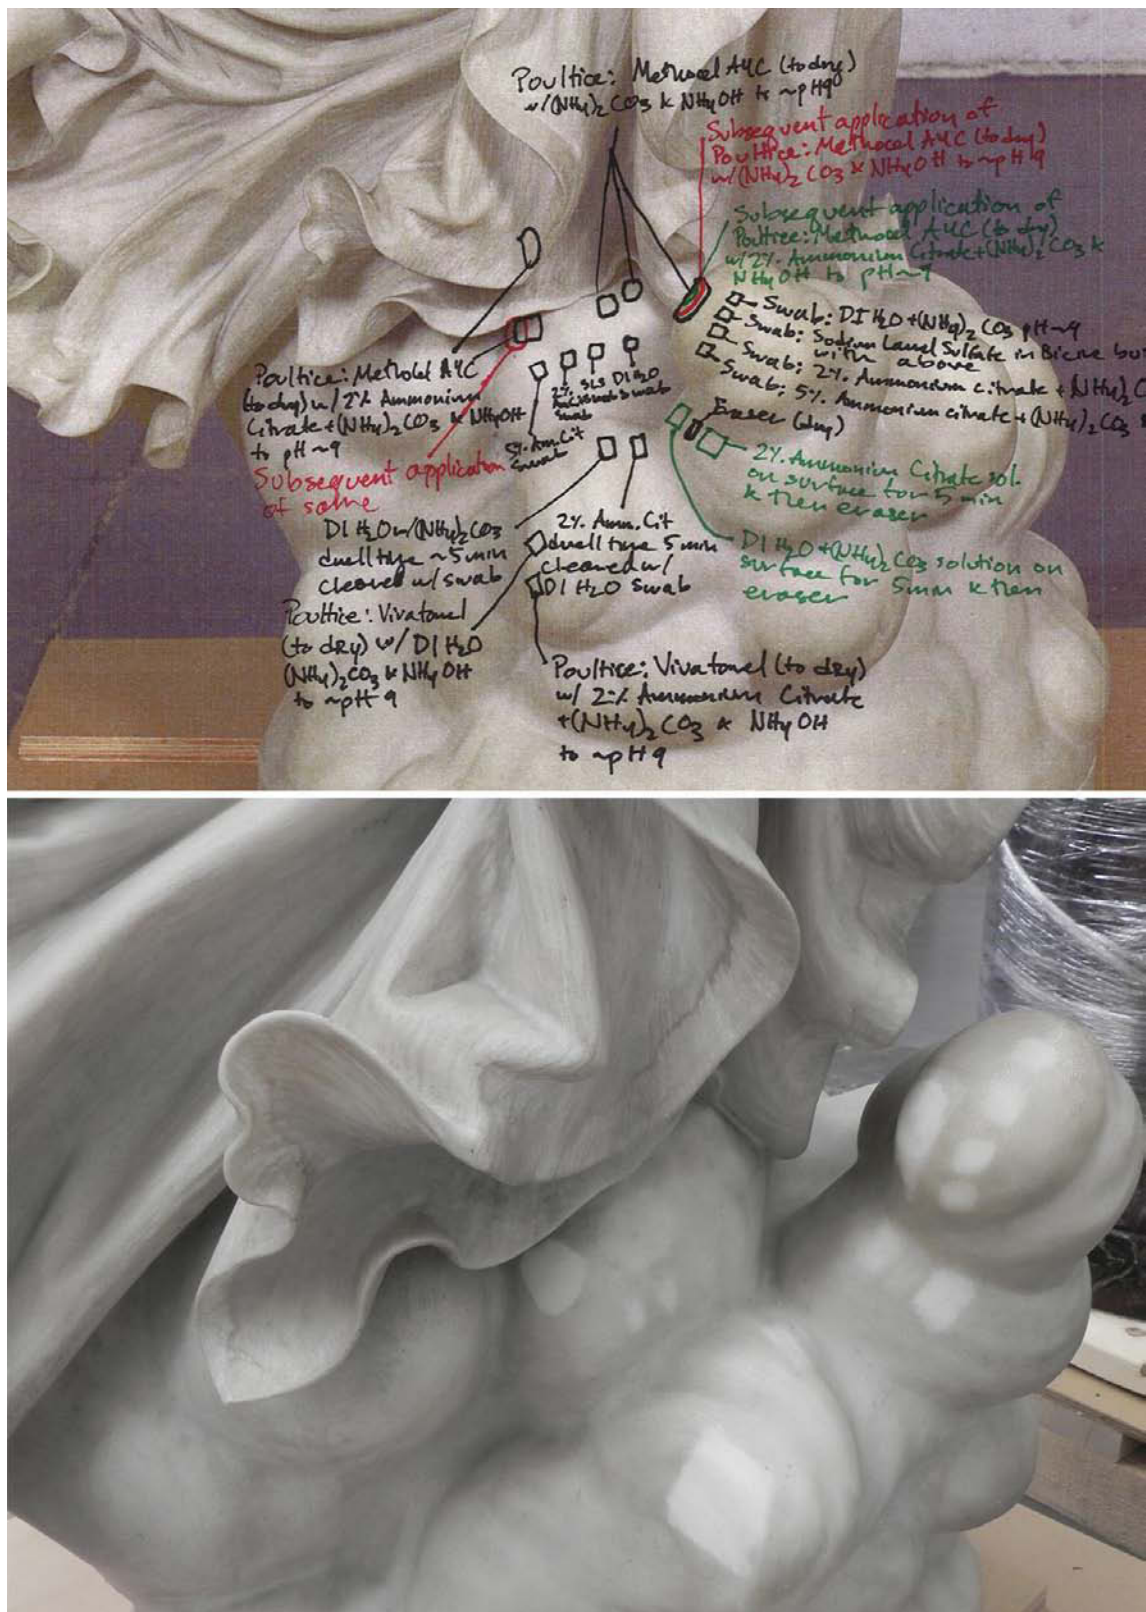 Poultice: Methocel A4C (to dry)
w/(NH4)2 CO3 & NH4OH to ~pH9
Subsequent application of
Poultice: Methocel A4C (to dry)
w/(NH4)2 CO3 & NH4OH to ~pH9
Subsequent application of
Poultice: Methocel A4C (to dry)
w/ 2% Ammonium Citrate + (NH4)2 CO3 &
NH4OH to pH~9
Swab: DI H2O + (NH4)2 CO3 pH~9
Swab: Sodium Laurel Sulfate in Bicine
with above
Swab: 2% Ammonium citrate + (NH4)2
Swab: 5% Ammonium citrate + (NH4)2 CO3
Poultice: Methocel A4C
(to dry) w/ 2% Ammonium
Citrate + (NH4)2 CO3 & NH4OH
to pH~9
Subsequent application
of same
5% Am.Cit
Swab
2%
swab
SLS
swab
DI H2O
swab
Eraser (dry)
2% Ammonium Citrate sol.
on surface for 5 min
& then eraser
DI H2O + (NH4)2 CO3 solution on
surface for 5min & then
eraser
DI H2O w/(NH4)2 CO3
dwell time ~5min
cleaned w/ swab
2% Amm. Cit
dwell time 5 min
cleaned w/
DI H2O Swab
Poultice: Vivatowel
(to dry) w/ DI H2O
(NH4)2 CO3 & NH4OH
to ~pH 9
Poultice: Vivatowel (to dry)
w/ 2% Ammonium Citrate
+(NH4)2 CO3 & NH4OH
to ~pH 9